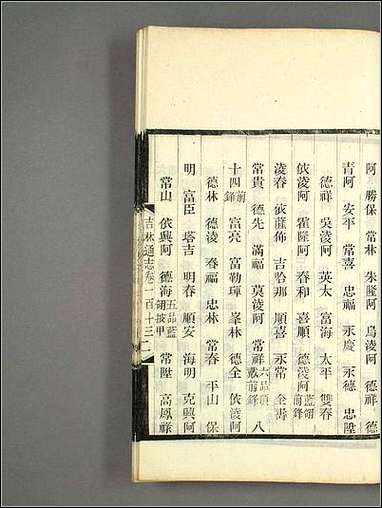 阿　勝保　常林　朱隆阿　烏淩阿　德祥　德
青阿　安平　常喜　忠福　永慶　永德　忠陞
德祥　吳淩阿　英太　富海　太平　雙春
依淩阿　霍隆阿　春和　喜順　德淩阿藍翎前鋒
淩春　薩佈　吉哈那　順喜　永常　全壽
常貴　德先　滿福　莫淩阿　常祥六品頂戴前鋒　八
十四前鋒　富亮　富勒琿　峯林　德全　依淩阿
德林　德淩　春福　忠林　常春　平山　保
明　富臣　塔吉　明春　順安　海明　克興阿
常山　依興阿　德海五品藍翎披甲　常陞　高鳳祿
吉林通志卷一百十三　二